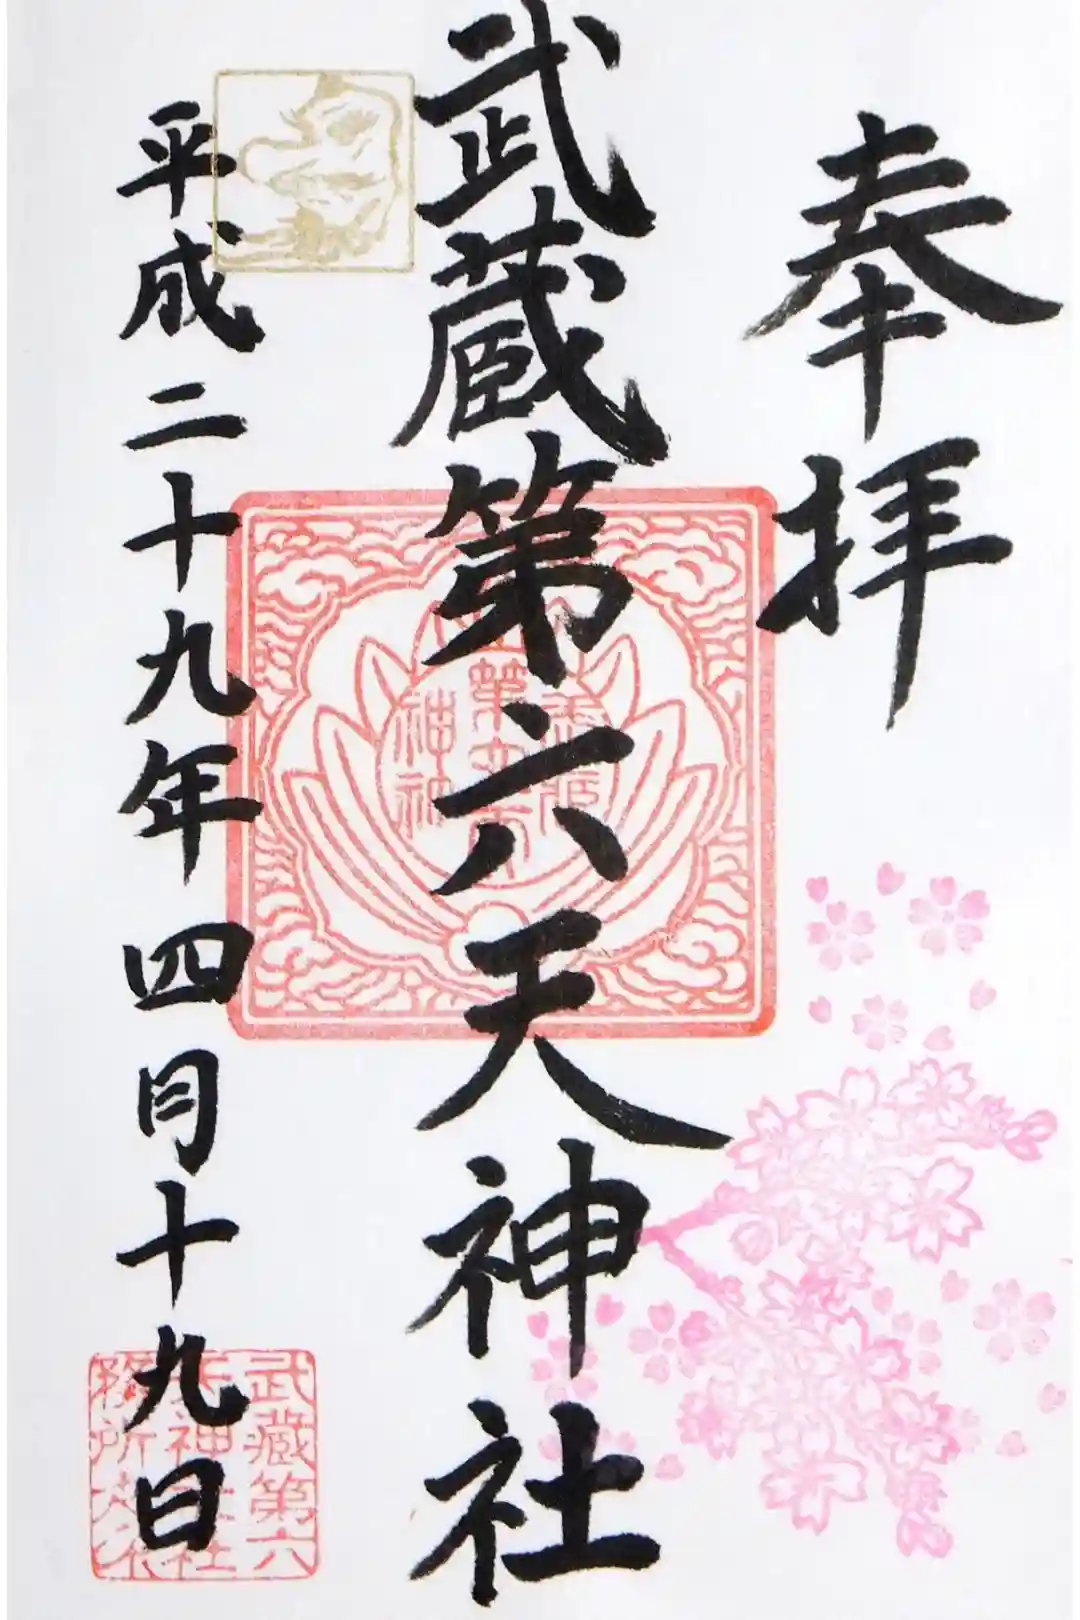 奉拝
武蔵第六天神社
平成二十九年四月十九日
武蔵第六
天神社社
務所